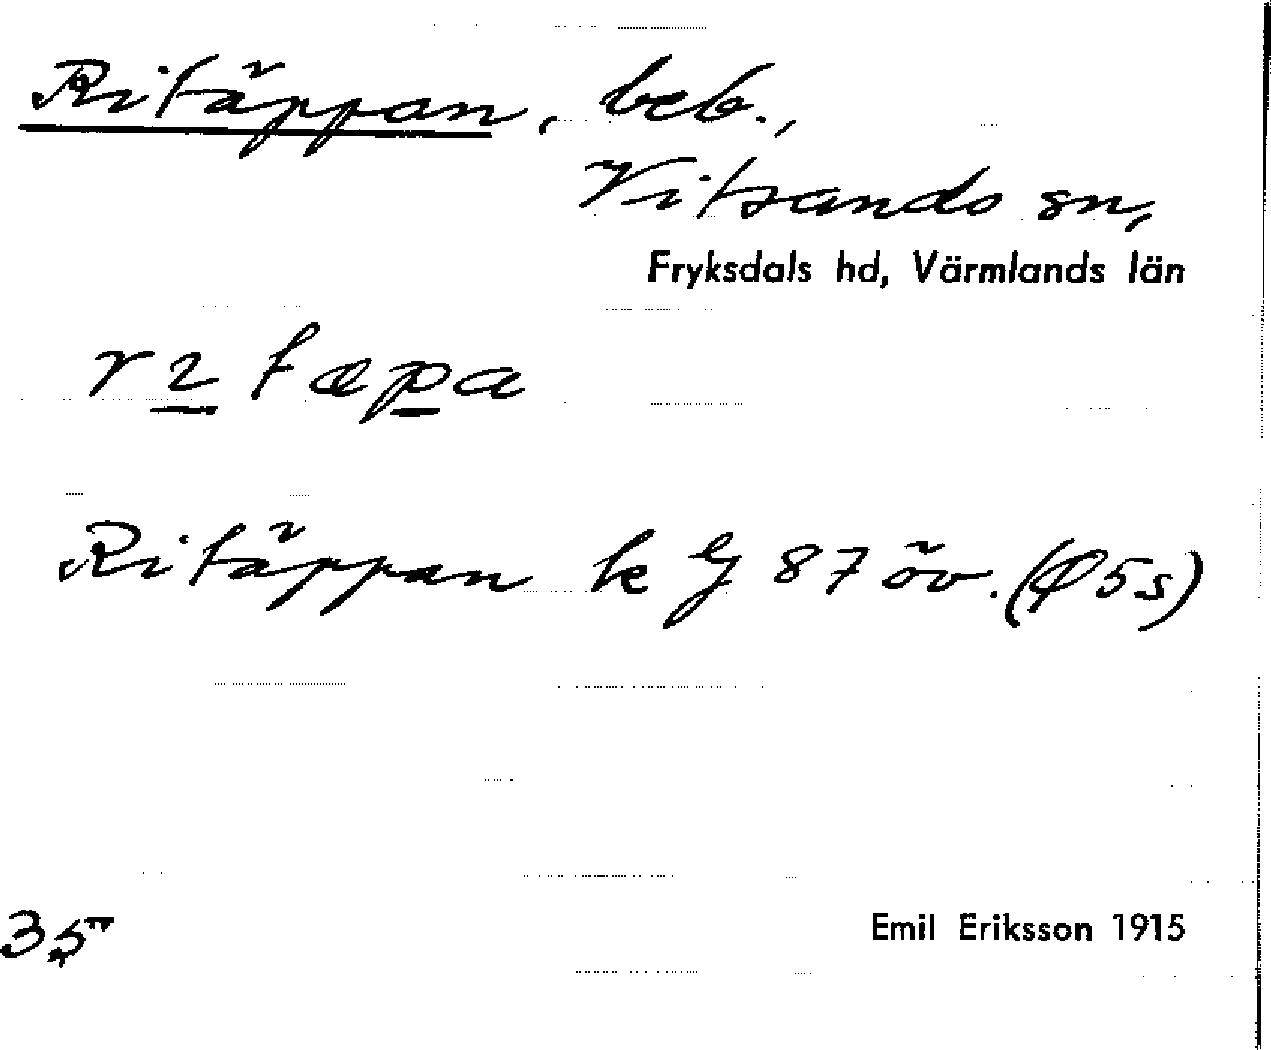 Ritäppan, beb.,
Vitsands sn,
Fryksdals hd, Värmlands län
r2 tæpa
Ritäppan k G 87 öv. (Ø5s)
35
Emil Eriksson 1915